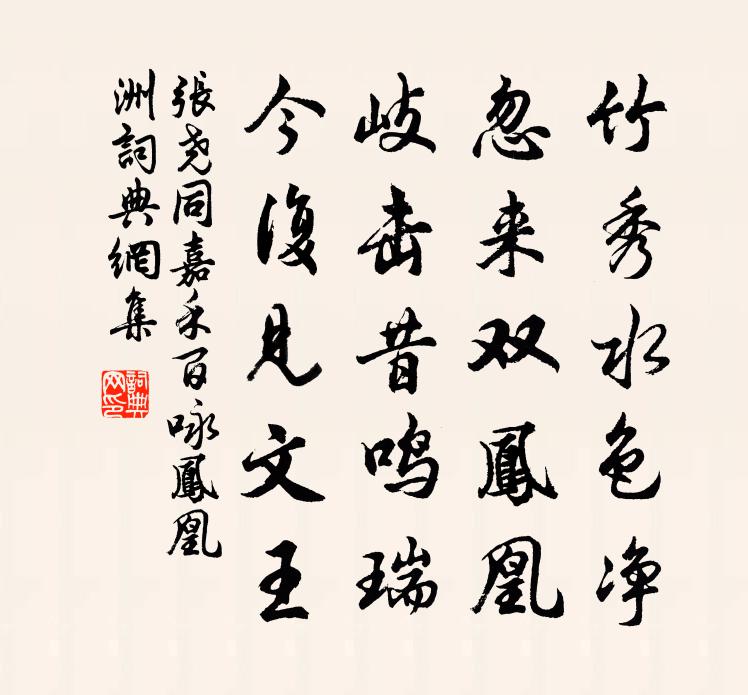 竹秀水色净
忽来双鳳凰
岐昔鸣瑞
今復見文王
張尧同嘉禾百咏鳳凰
洲詞典網集
詞典网印